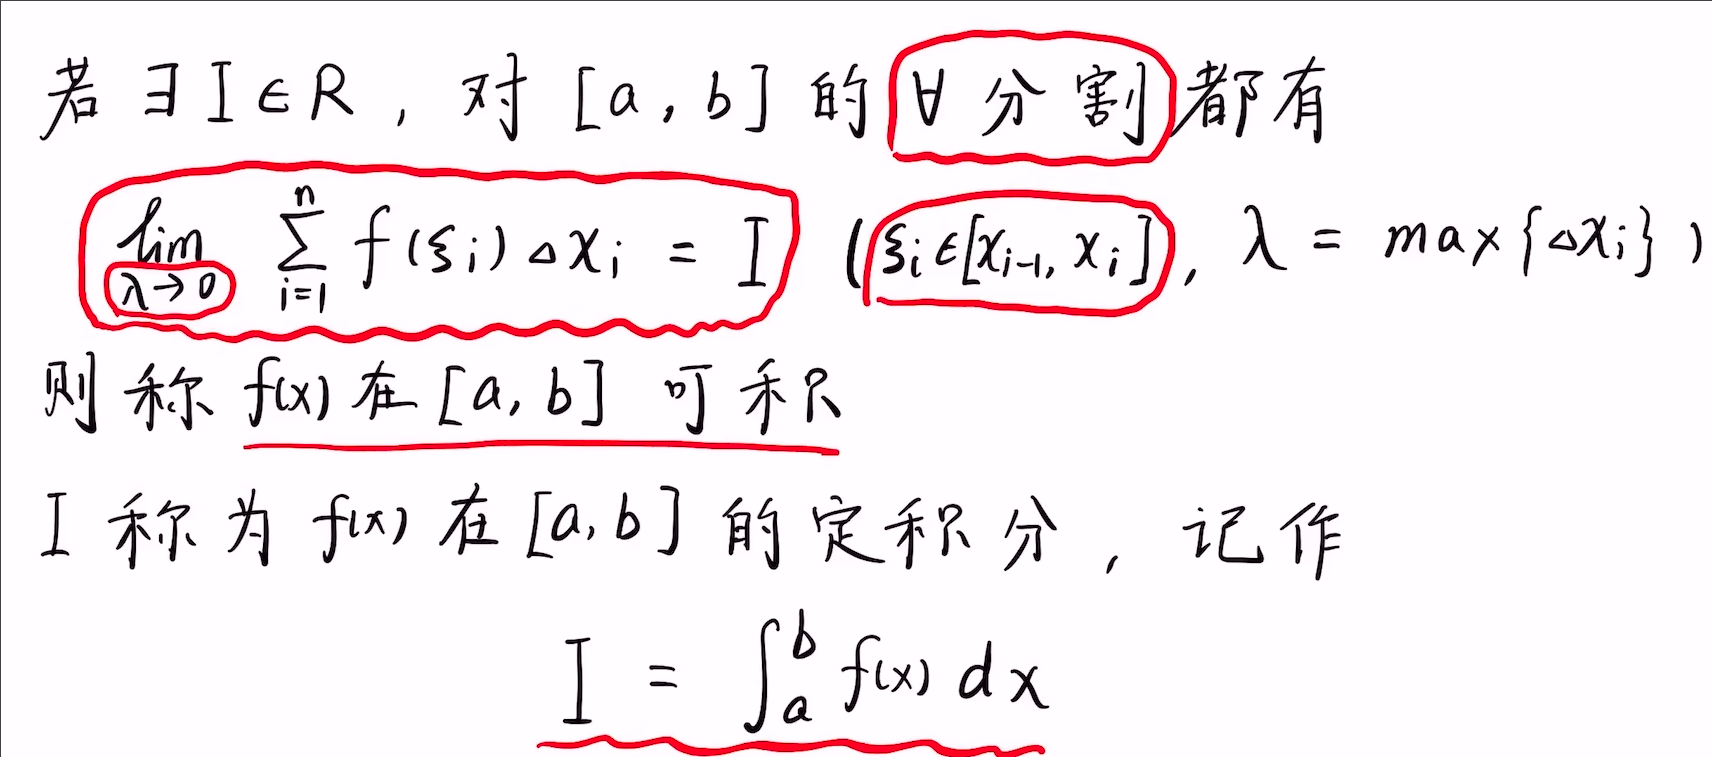 若 ∃ I ∈ R , 对 [a , b] 的 ∀ 分割都有
lim_{λ→0} ∑_{i=1}^{n} f(ξ_i) △x_i = I (ξ_i ∈ [x_{i-1}, x_i], λ = max{△x_i})
则称 f(x) 在 [a, b] 可积
I 称为 f(x) 在 [a, b] 的定积分 , 记作
I = ∫_a^b f(x) dx